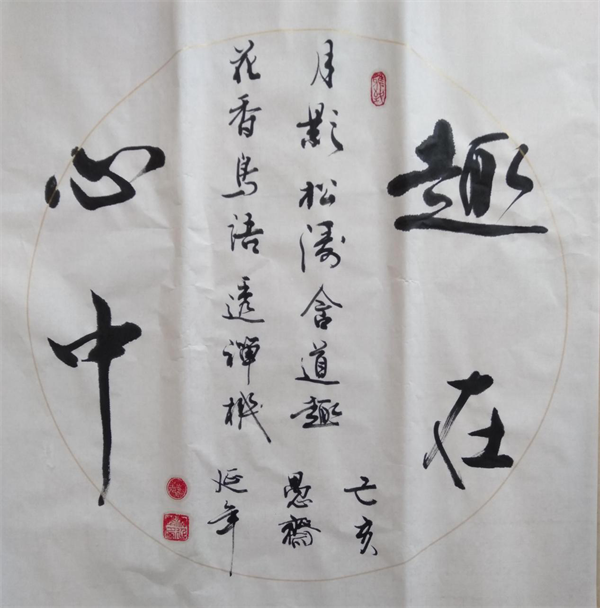 趣在
月影松涛含道趣
花香鸟语透禅机
己亥
愚斋
延年
心中